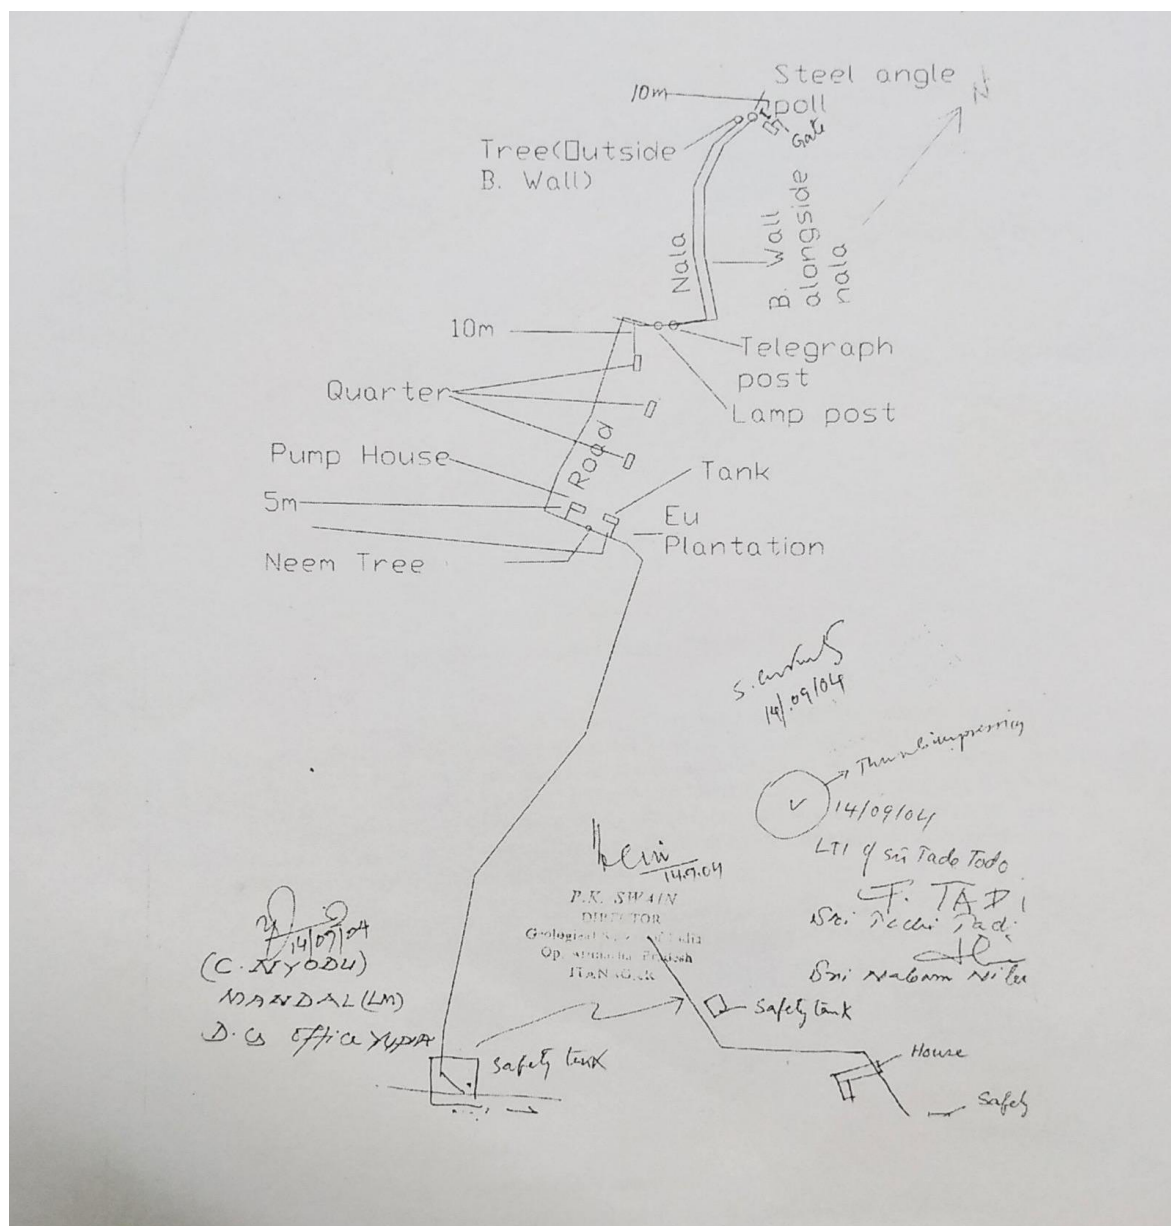 Steel angle
poll
10m
N
Gate
Tree(Outside
B. Wall)
Nala
B. Wall
alongside
nala
10m
Telegraph
post
Lamp post
Quarter
Road
Pump House
Tank
5m
Eu
Plantation
Neem Tree
14/09/04
Thumb impression
14/09/04
LTI of Sri Tado Todo
T. TADI
Sri Techi Tadi
Sri Nabam
14.9.04
P.K. SWAIN
DIRECTOR
Geological Survey of India
Op. Arunachal Pradesh
ITANAGAR
14/09/04
(C. NYODU)
MANDAL (LM)
D.Cs office YUPIA
Safety tank
Safety tank
House
Safety